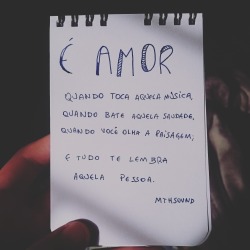 É AMOR
QUANDO TOCA AQUELA MÚSICA,
QUANDO BATE AQUELA SAUDADE,
QUANDO VOCÊ OLHA A PAISAGEM;
E TUDO TE LEMBRA
AQUELA PESSOA.
MTHSOUND